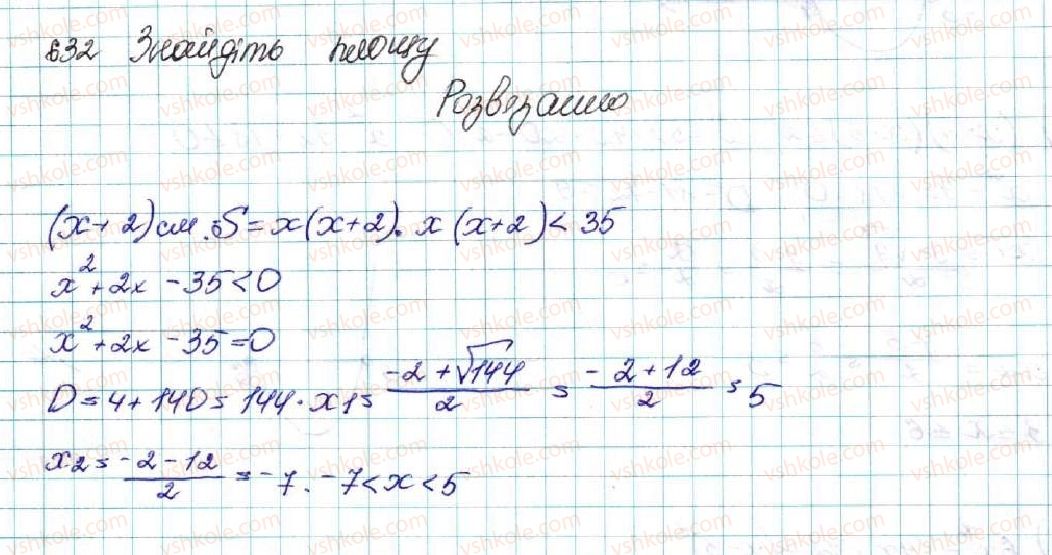 632 Знайдіть площу
Розв'язання
(x+2) см. S = x(x+2). x(x+2) < 35
x² + 2x - 35 < 0
x² + 2x - 35 = 0
D = 4 + 140 = 144. x1 = (-2 + √144)/2 = (-2+12)/2 = 5
x2 = (-2-12)/2 = -7. -7 < x < 5